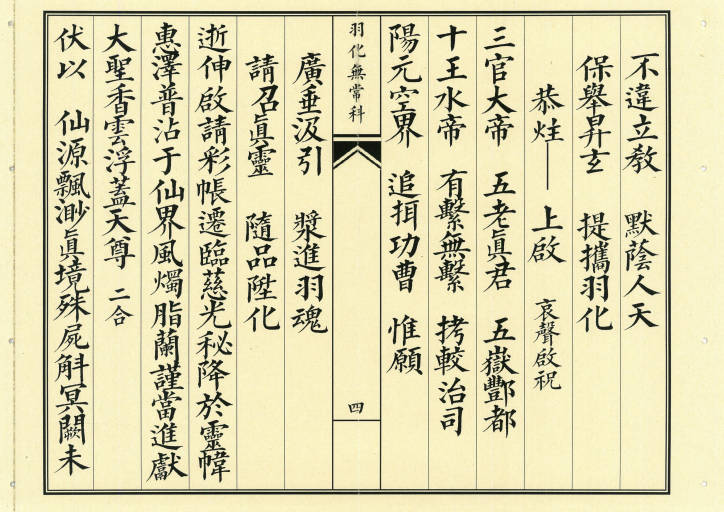 不違立教　默蔭人天
保舉昇玄　提攜羽化
恭炷——上啟　哀聲啟祝
三官大帝　五老眞君　五嶽酆都
十王水帝　有繫無繫　拷較治司
陽元空界　追揖功曹　惟願
羽化無常科
四
廣垂汲引　槳進羽魂
請召眞靈　隨品陞化
逝伸啟請彩帳遷臨慈光秘降於靈幃
惠澤普沾于仙界風燭脂蘭謹當進獻
大聖香雲浮蓋天尊　二合
伏以　仙源飄渺眞境殊屍斛冥闕未